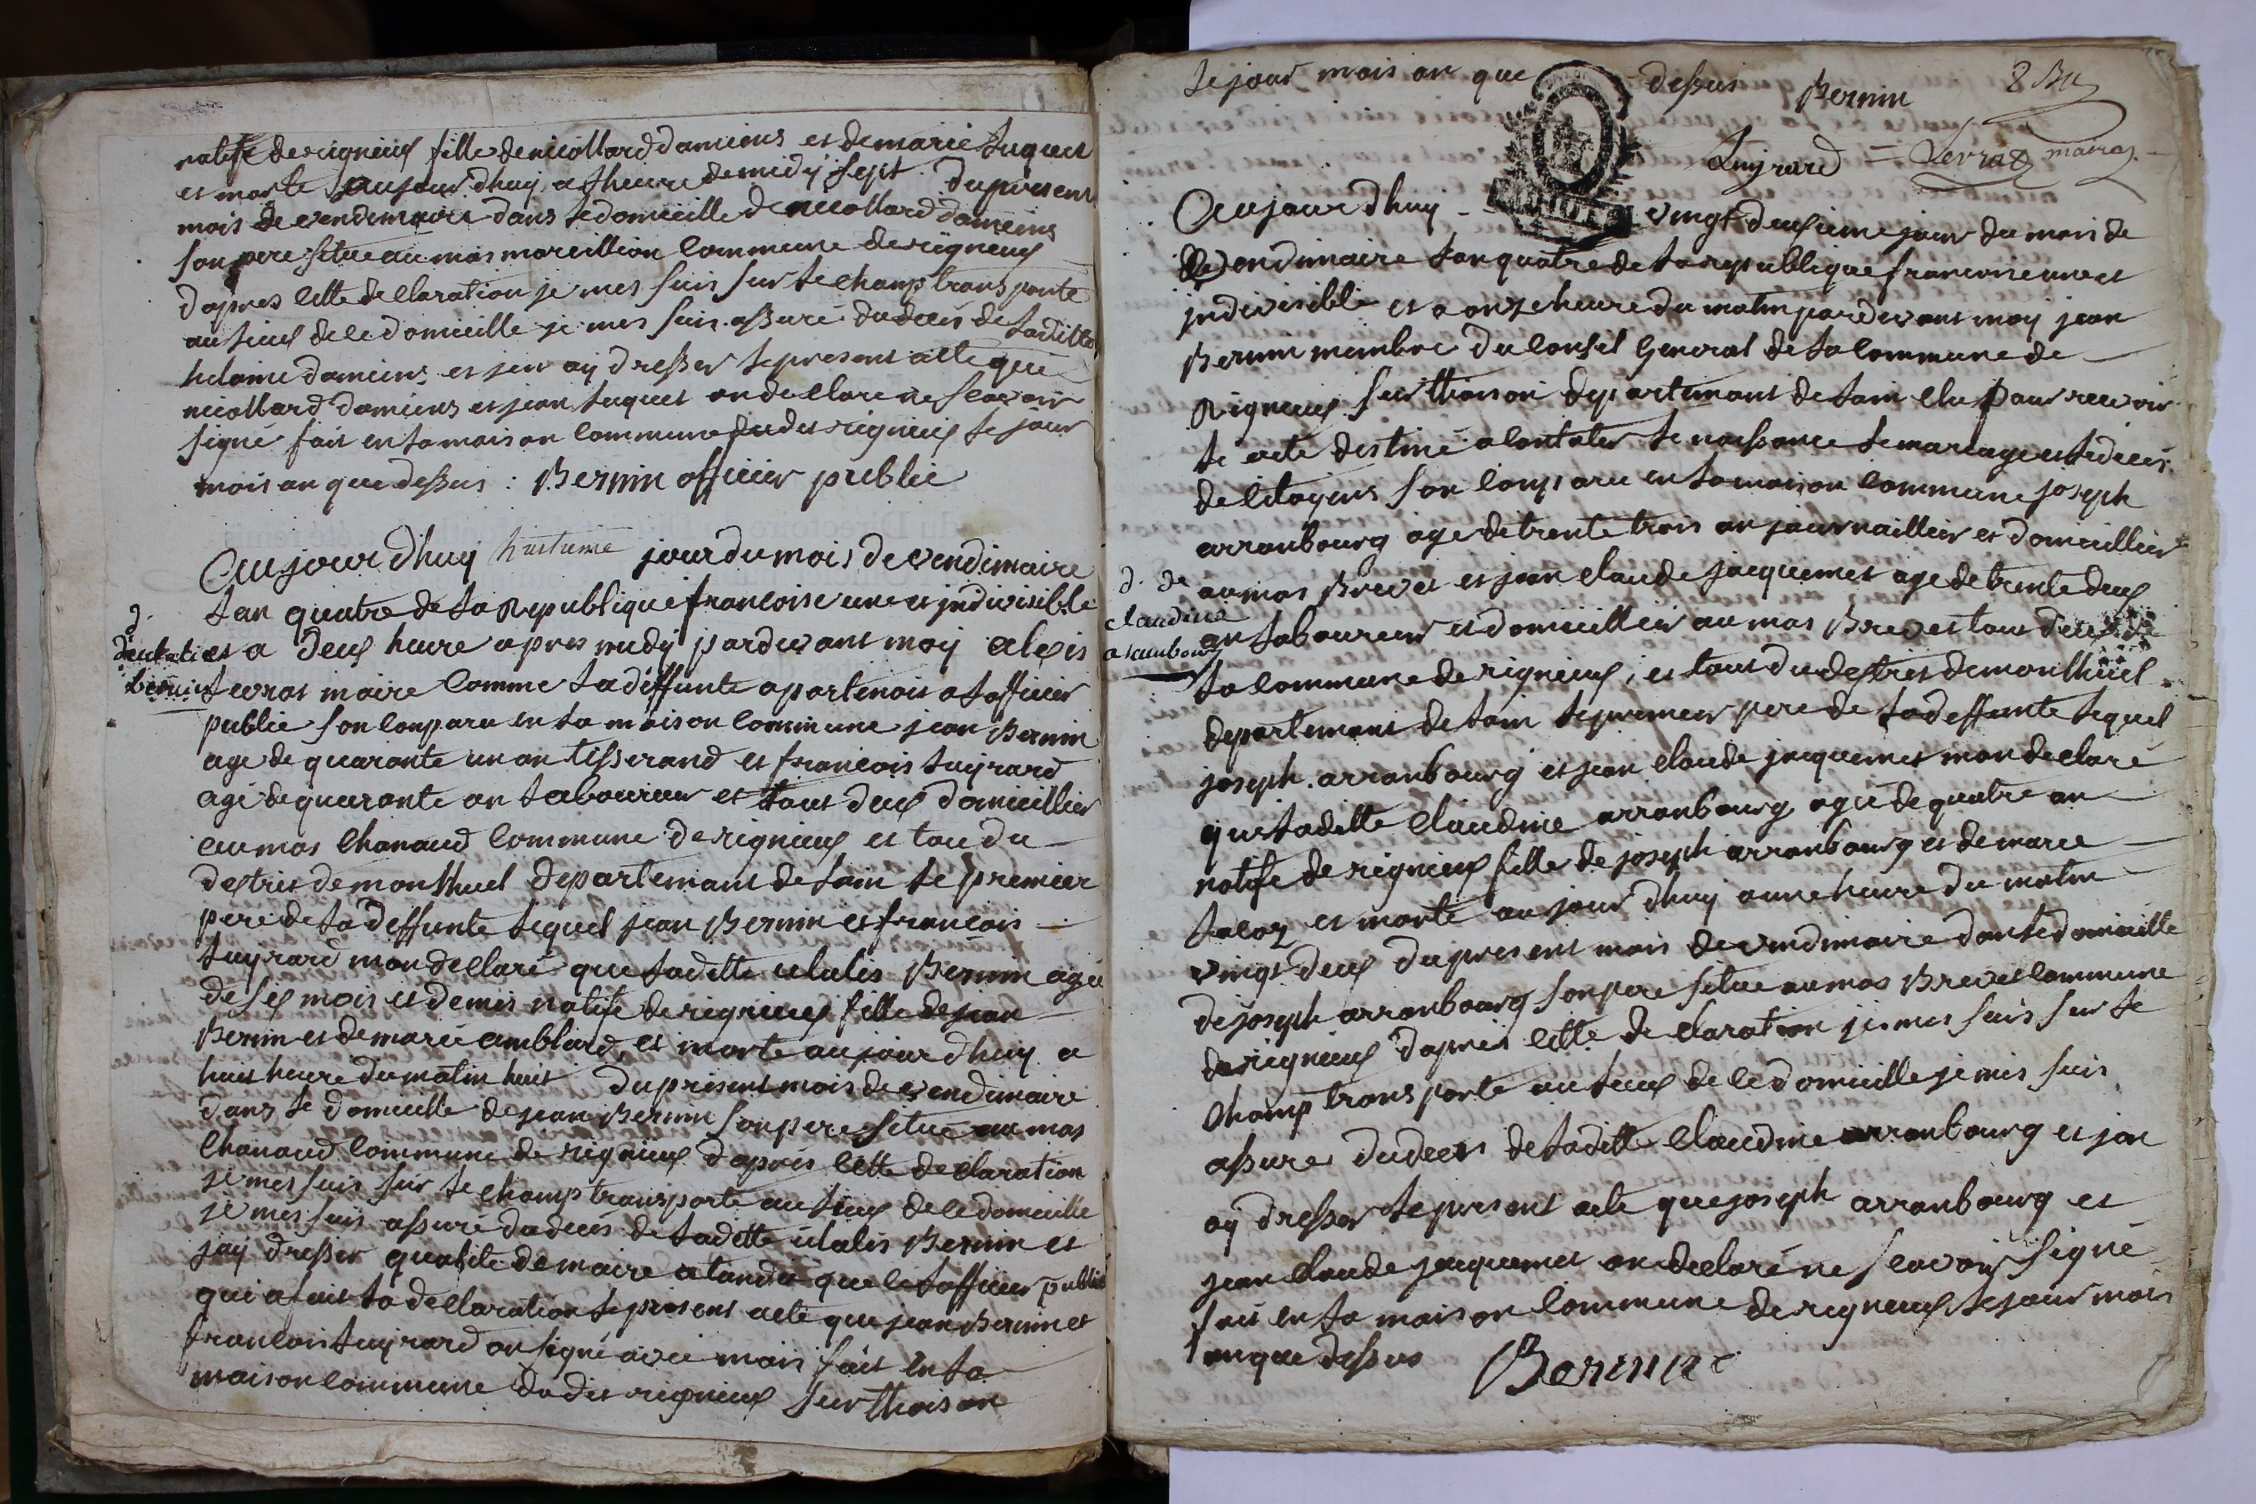 natife de rigneux fille de nicollard damiens et de marie huguet
et morte aujourdhuy a lheure de midy sept du present
mois de vendimaire dans le domicille de nicollard damiens
son pere situe au mas moreillion commune de rigneux
dapres cette declaration je mes suis sur le champ transporte
au lieux de le domicille je mes suis assuré du deces de laditte
damiens et jen ay dresser le present acte que
nicollard damiens et jean huguet on declare ne scavoir
signé fait en la maison commune dudit rigneux le jour
mois an que dessus : Bernin officier public
Aujourdhuy huitieme jour du mois de vendimaire
lan quatre de la Republique francoise une et jndivisible
et a deux heure apres midy pardevant moy alexis
levrat maire comme la deffunte apartenoit a lofficier
public son conparu en la maison commune jean Bernin
age de quarante un an tisserand et francois luyrard
agé de quarante an laboureur et tout deux domicillier
au mas Chanaud commune de rigneux et tou du
destric de monthuel departemant de lain le premier
pere de la deffunte lequel jean Bernin et francois
luyrard mon declaré que laditte ulalis Bernin agée
de six mois et demis natife de rigneux fille de jean
Bernin et de marie amblard, et morte aujourdhuy a
huit heure du matin huit du present mois de vendimaire
dans le domicille de jean Bernin son pere situé au mas
Chanaud commune de rigneux dapres cette declaration
je mes suis sur le champ transporte au lieux de le domicille
je mes suis assuré du deces de laditte ulalis Bernin et
jay dresser qualite de maire atandu que cet lofficier public
qui a fait la declaration le present acte que jean Bernin et
francois luyrard on signé avec mois fait en la
maison commune dudit rigneux sur thoison
d.
Bernin
le jour mois an que dessus Bernin
luyrard = Levrat maire
Aujourdhuy vingt deuxieme jour du mois de
Vendimaire lan quatre de la republique francoise une et
jndivisible et a onze heure du matin pardevant moy jean
Bernin membre du Consil General de la commune de
Rigneux sur thoison departemant de lain elu pour recevoir
le acte destiné a contater le naissance le mariage et le deces
de citoyens son conparu en la maison commune joseph
arranbourg age de trente trois an journaillier et domicillier
au mas Brevet et jean claude jacquemet age de trente deux
an laboureur et domicillier au mas Brevet tout deux de
la commune de rigneux, et tout du destrit de monthuel
departemant de lain le premier pere de la deffunte lequel
joseph arranbourg et jean claude jacquemet mon declaré
que laditte Claudine arranbourg agée de quatre an
natife de rigneux fille de joseph arranbourg et de marie
laloz et morte aujourdhuy a une heure du matin
vingt deux du present mois de vendimaire dans le domicille
de joseph arranbourg son pere situe au mas Brevet commune
de rigneux dapres cette declaration je mes suis sur le
champ transporte au lieux de le domicille je mes suis
assure du deces de laditte Claudine arranbourg et jan
ay dresser le present acte que joseph arranbourg et
jean claude jacquemet on declaré ne scavoir signé
fait en la maison commune de rigneux le jour mois
an que dessus Bernin
d. de
claudine
aranbourg